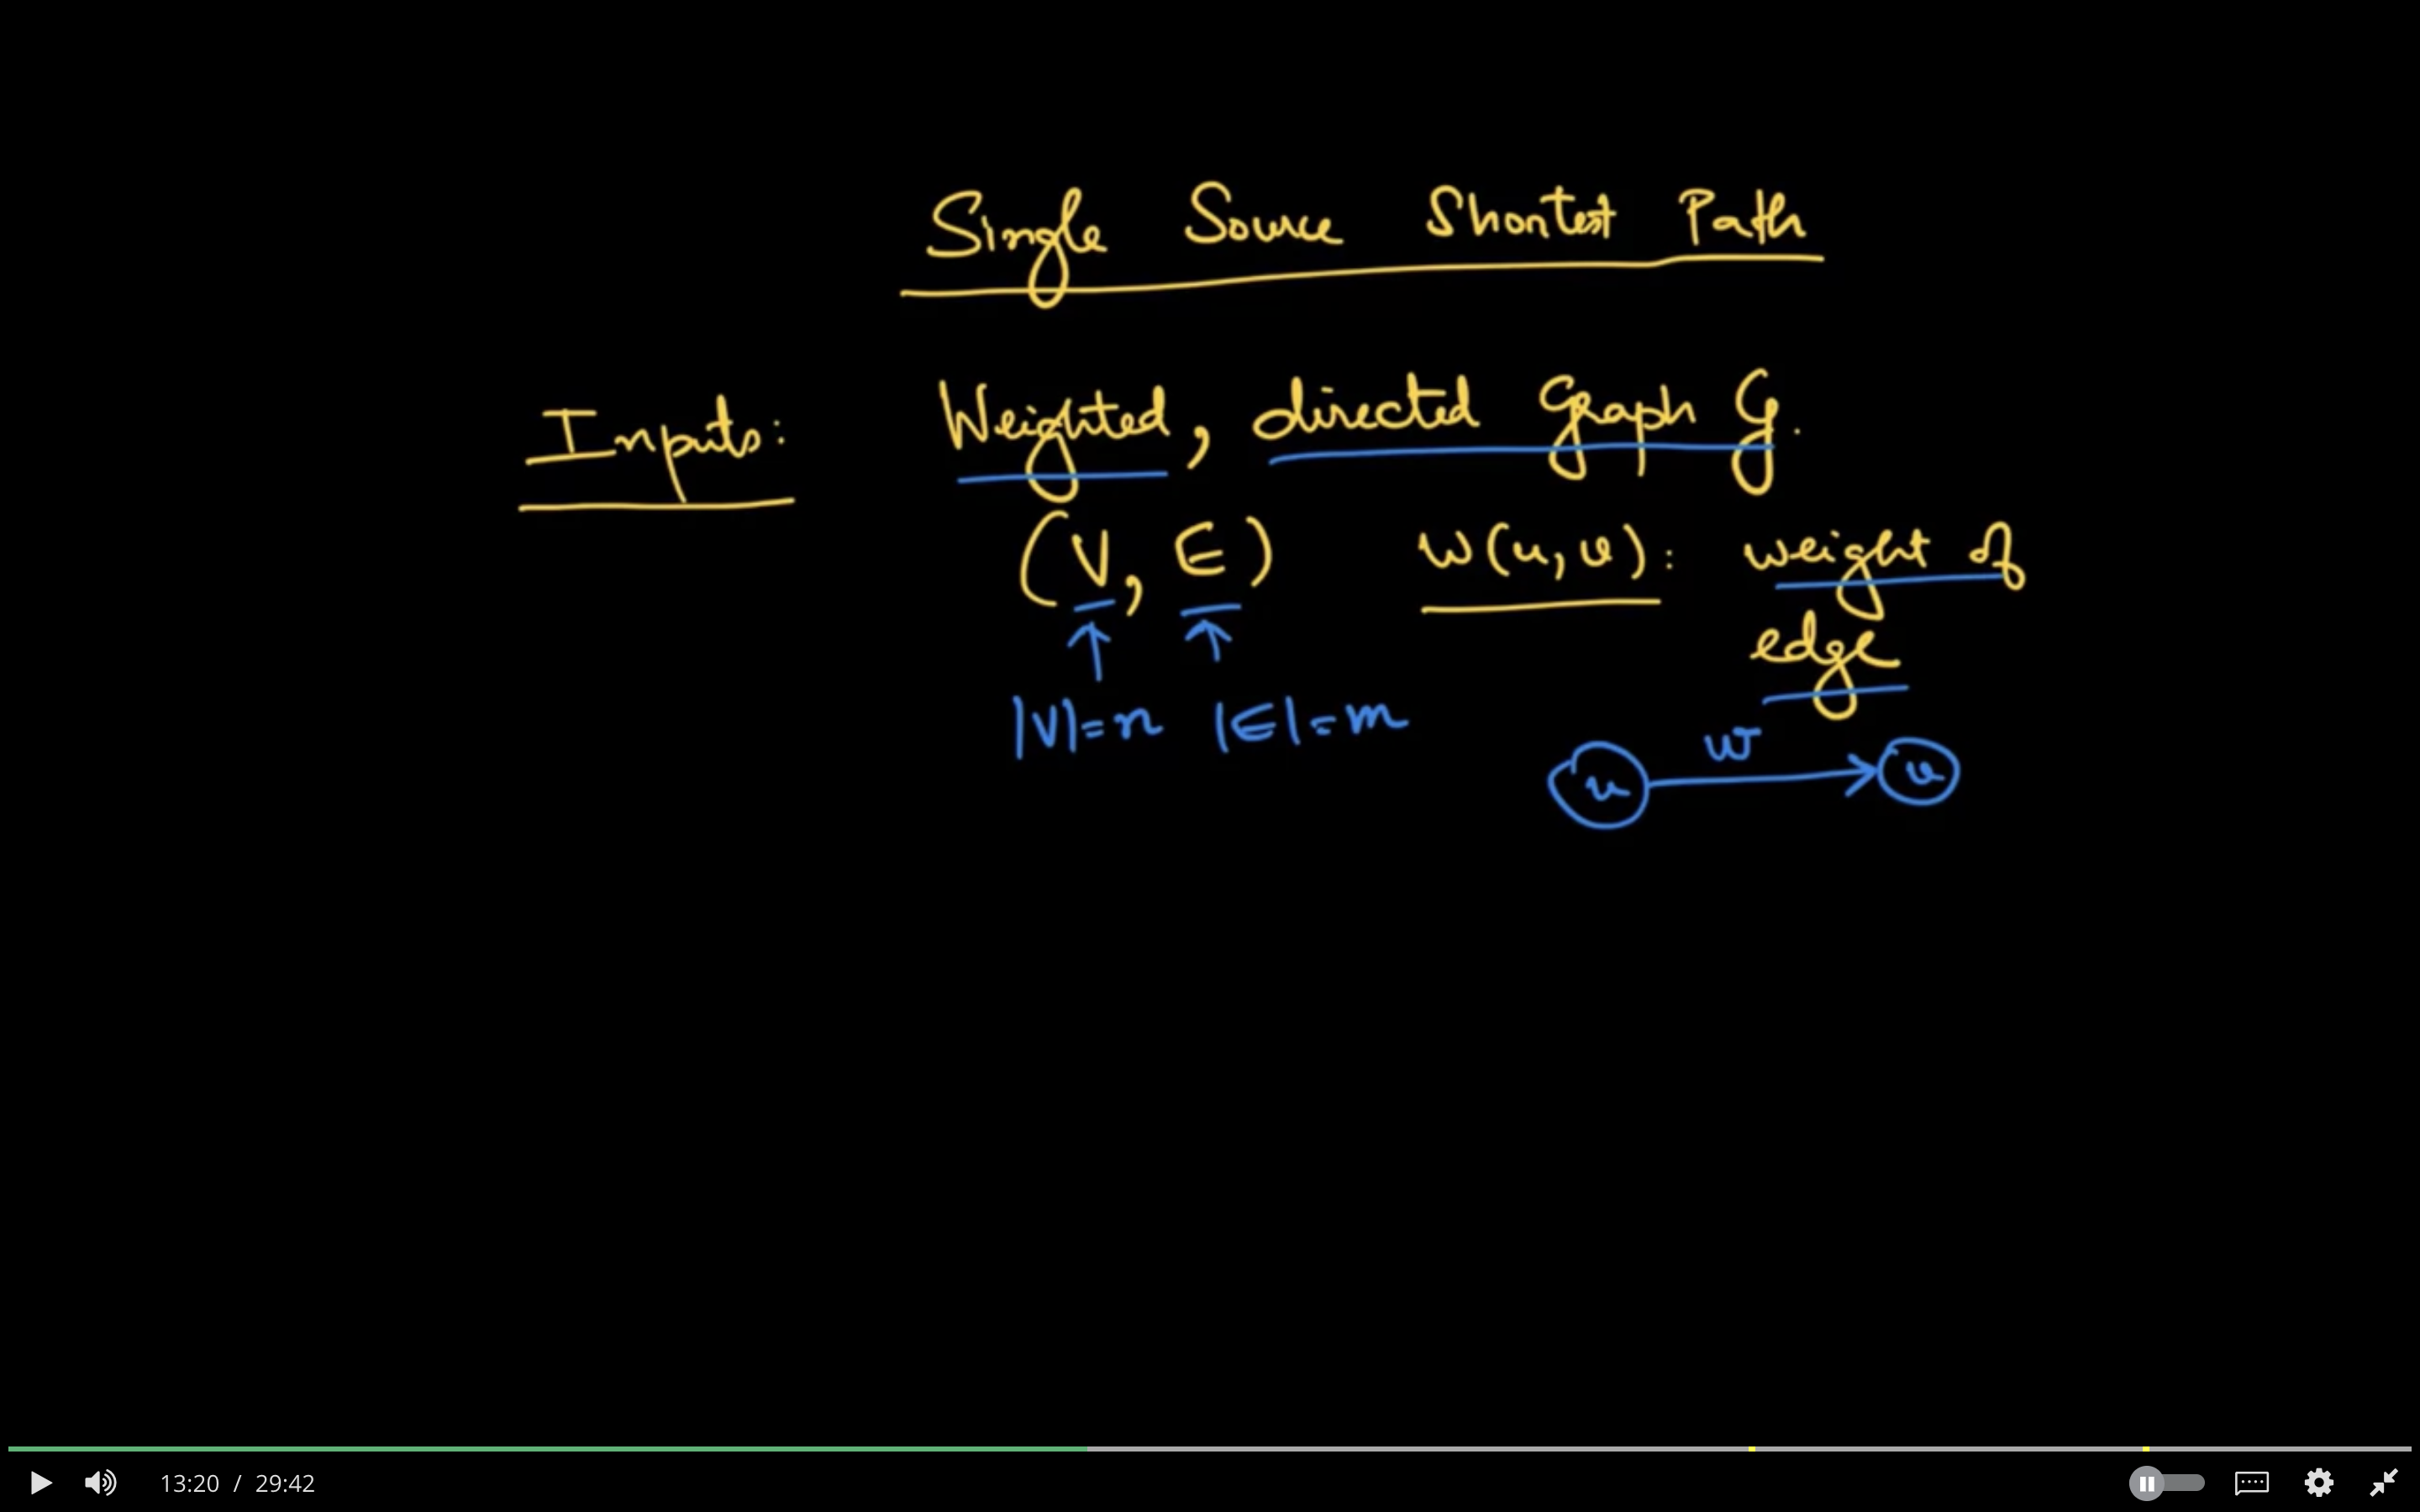 Single Source Shortest Path
Inputs: Weighted, directed Graph G.
(V, E) W(u,v): weight of
edge
|V|=n |E|=m
w
u v
13:20 / 29:42